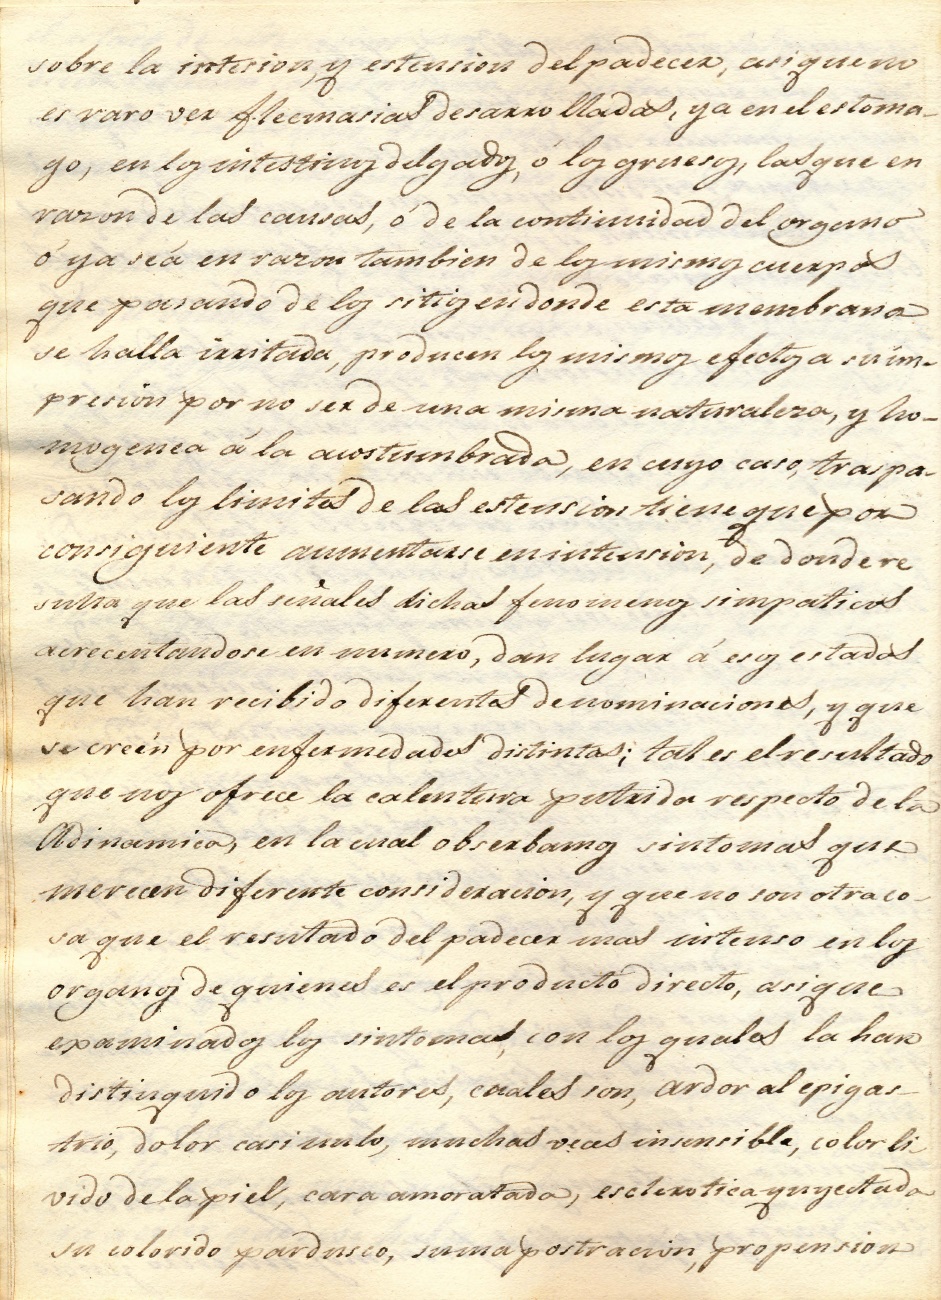 sobre la intesion, y estension del padecer, asi que no
es raro ver flecmasias desarrolladas, ya en el estoma-
go, en los intestinos delgados, ó los gruesos, las que en
razon de las causas, ó de la continuidad del organo
ó ya séa en razon tambien de los mismos cuerpos
que pasando de los sitios en donde esta membrana
se halla irritada, producen los mismos efectos a su im-
presion por no ser de una misma naturaleza, y ho-
mogenea á la acostumbrada, en cuyo caso, traspa-
sando los limites de las estension tiene que por
consiguiente aumentarse en intension, de donde re
sulta que las señales dichas fenomenos simpaticos
acrecentandose en numero, dan lugar á esos estados
que han recibido diferentes denominaciones, y que
se creén por enfermedades distintas; tal es el resultado
que nos ofrece la calentura putrida respecto de la
Adinamica, en la cual obserbamos sintomas que
merecen diferente consideracion, y que no son otra co-
sa que el resultado del padecer mas intenso en los
organos de quienes es el producto directo, asi que
examinados los sintomas, con los quales la han
distinguido los autores, cuales son, ardor al epigas-
trio, dolor casi nulo, muchas veces insensible, color li-
vido de la piel, cara amoratada, esclerotica ynyectada
su colorido pardusco, suma postracion, propension